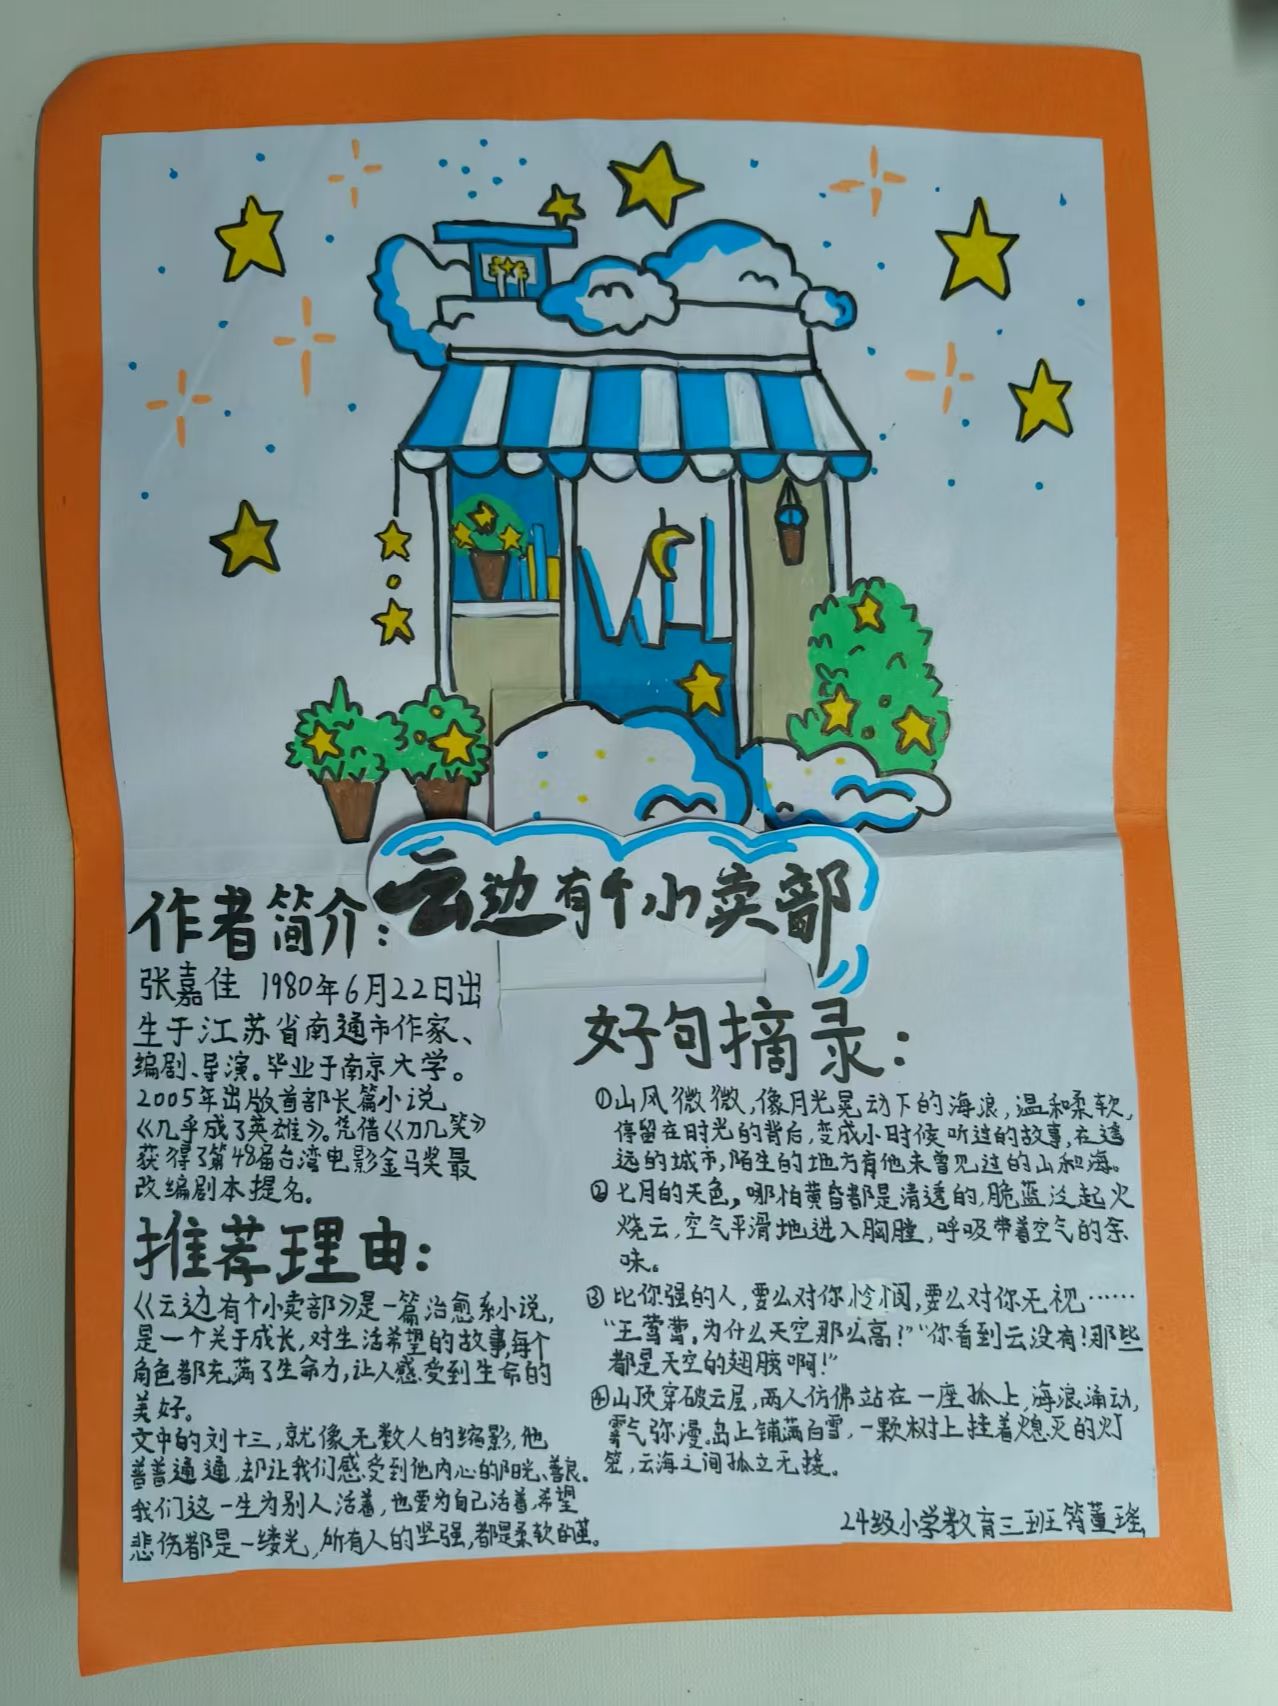 云边有个小卖部
作者简介：
张嘉佳 1980年6月22日出
生于江苏省南通市作家、
编剧、导演。毕业于南京大学。
2005年出版首部长篇小说
《几乎成了英雄》。凭借《刀见笑》
获得了第48届台湾电影金马奖最
改编剧本提名。
推荐理由：
《云边有个小卖部》是一篇治愈系小说，
是一个关于成长，对生活希望的故事，每个
角色都充满了生命力，让人感受到生命的
美好。
文中的刘十三，就像无数人的缩影，他
普普通通，却让我们感受到他内心的阳光、善良。
我们这一生为别人活着，也要为自己活着，希望
悲伤都是一缕光，所有人的坚强，都是柔软的茧。
好句摘录：
①山风微微，像月光晃动下的海浪，温和柔软，
停留在时光的背后，变成小时候听过的故事，在遥
远的城市，陌生的地方有他未曾见过的山和海。
②七月的天色，哪怕黄昏都是清透的，脆蓝泛起火
烧云，空气平滑地进入胸膛，呼吸带着空气的余
味。
③比你强的人，要么对你怜悯，要么对你无视……
“王莺莺，为什么天空那么高？”“你看到云没有！那些
都是天空的翅膀啊！”
④山顶穿破云层，两人仿佛站在一座孤上，海浪涌动，
雾气弥漫。岛上铺满白雪，一颗树上挂着熄灭的灯
笼，云海之间孤立无援。
24级小学教育三班符董瑶